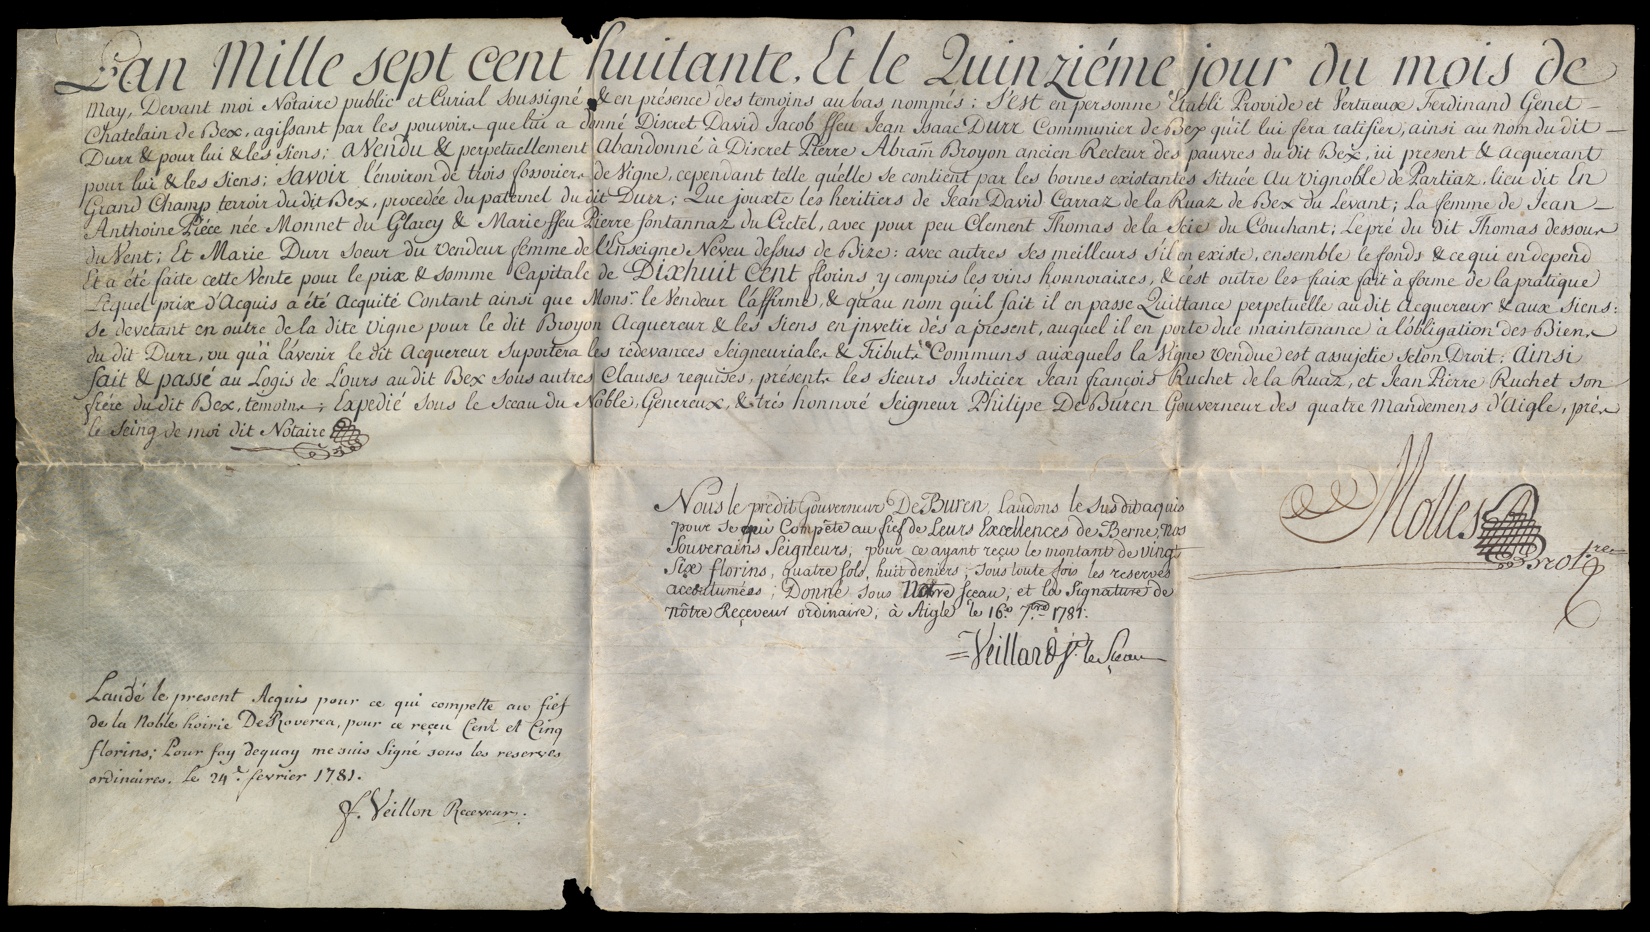 L'an Mille sept cent huitante, Et le Quinziéme jour du mois de
May, Devant moi Notaire public et Curial Soussigné & en présence des temoins au bas nommés; s'est en personne Etabli Provide et Vertueux Ferdinand Genet
Chatelain de Bex, agissant par les pouvoirs que lui a donné Discret David Jacob ffeu Jean Isaac Durr Communier de Bex qu'il lui fera ratifier, ainsi au nom du dit
Durr & pour lui & les Siens; a Vendu & perpetuellement Abandonné à Discret Pierre Abram Broyon ancien Recteur des pauvres du dit Bex, ici present & acquerant
pour lui & les Siens; Savoir l'environ de trois fossoriers de Vigne, cependant telle qu'elle se contient par les bornes existantes située Au Vignoble de Partiaz, lieu dit En
Grand Champ terroir du dit Bex, procedée du paternel du dit Durr; Que jouxte les heritiers de Jean David Carraz de la Ruaz de Bex du Levant; La femme de Jean
Anthoine Piéce née Monnet du Glarey & Marie ffeu Pierre fontannaz du Cretel, avec pour peu Clement Thomas de la Scie du Couchant; L'épré du dit Thomas dessous
du Vent; Et Marie Durr Soeur du Vendeur femme de l'Enseigne Neveu dessus de Bize: avec autres ses meilleurs s'il en existe, ensemble le fonds & ce qui en depend
Et a été faite cette Vente pour le prix & somme Capitale de Dixhuit Cent florins y compris les vins honnoraires, & c'est outre les fraix fait à forme de la pratique
Lequel prix d'Acquis a été Acquité Contant ainsi que Mons.r le Vendeur l'affirme, & qu'au nom qu'il fait il en passe Quittance perpetuelle au dit Acquereur & aux Siens:
Se devetant en outre de la dite Vigne pour le dit Broyon Acquereur & les Siens en jnvetir dés a present, auquel il en porte due maintenance à l'obligation des Biens
du dit Durr, vu qu'à l'avenir le dit Acquereur Suportera les redevances Seigneuriales & Tributs Communs auxquels la Vigne vendue est assujetie selon Droit: Ainsi
fait & passé au Logis de L'ours au dit Bex sous autres Clauses requises, présents les sieurs Justicier Jean françois Ruchet de la Ruaz, et Jean Pierre Ruchet son
frére du dit Bex, temoins; Expedié Sous le Sceau du Noble, Genereux, & trés honnoré Seigneur Philipe De Buren Gouverneur des quatre Mandemens d'Aigle, prés
le Seing de moi dit Notaire
Molles
not.re
Nous le prédit Gouverneur De Buren, Laudons le Susdit aquis
pour se qui Compète au fief de Leurs Excellences de Berne, Nos
Souverains Seigneurs, pour ce ayant reçu le montant de vingt
Six florins, quatre sols, huit deniers; sous toute fois les reserves
accoutumées; Donné sous Nôtre sceau, et la Signature de
nôtre Receveur ordinaire, à Aigle le 16.e 7.bre 1781.
Veillard le Sceau
Laudé le present Acquis pour ce qui compette au fief
de la Noble hoirie De Rovérea, pour ce reçeu Cent et Cinq
florins; Pour foy dequoy me suis Signé sous les reserves
ordinaires. Le 24.e fevrier 1781.
f. Veillon Receveur.